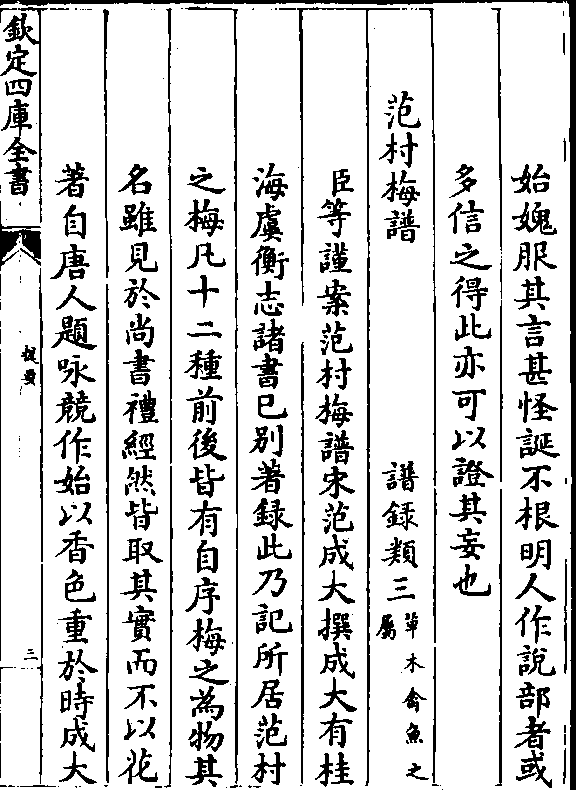 始媿服其言甚怪誕不根明人作說部者或
多信之得此亦可以證其妄也
范村梅譜 譜録類三 草木禽魚之屬
臣等謹案范村梅譜宋范成大撰成大有桂
海虞衡志諸書已别著録此乃記所居范村
之梅凡十二種前後皆有自序梅之為物其
名雖見於尚書禮經然皆取其實而不以花
著自唐人題咏競作始以香色重於時成大
欽定四庫全書
提要
三